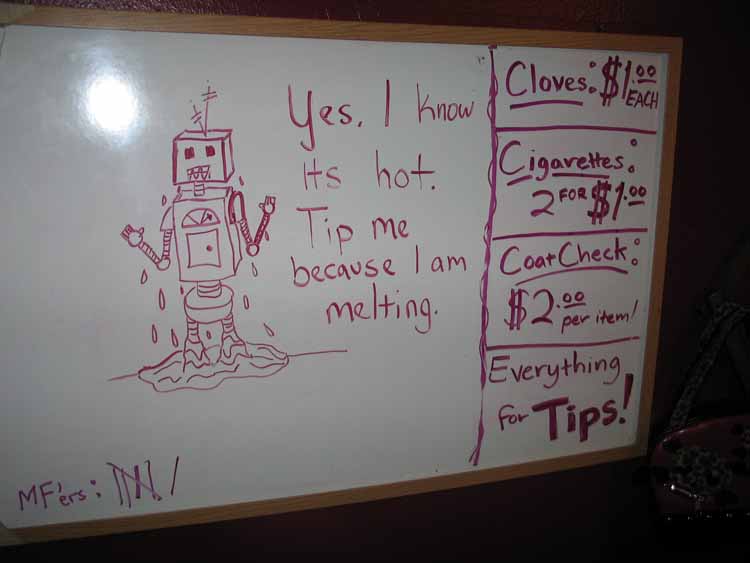 Yes, I know
Its hot.
Tip me
because I am
melting.
Cloves: $1.00
EACH
Cigarettes:
2 FOR $1.00
Coat Check:
$2.00
per item!
Everything
for Tips!
MF'ers: